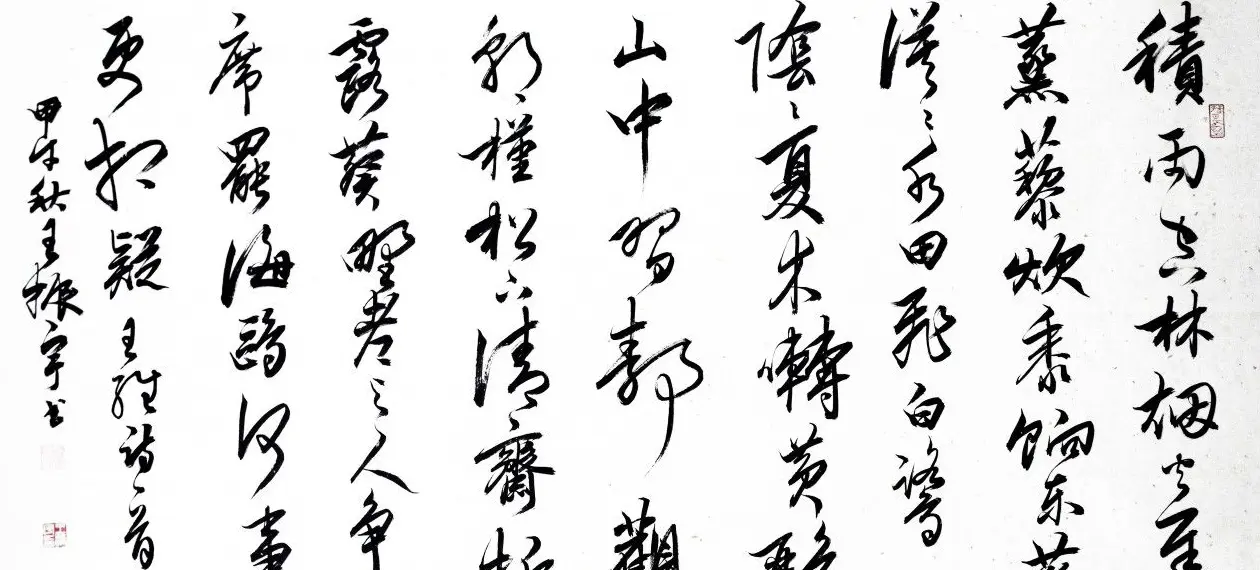 積雨空林烟火遲
蒸藜炊黍餉东菑
漠々水田飛白鷺
陰々夏木囀黄鸝
山中習静觀
朝槿松下清齋折
露葵野老与人争
席罷海鷗何事
更相疑 王維詩一首
甲午秋王振宇书